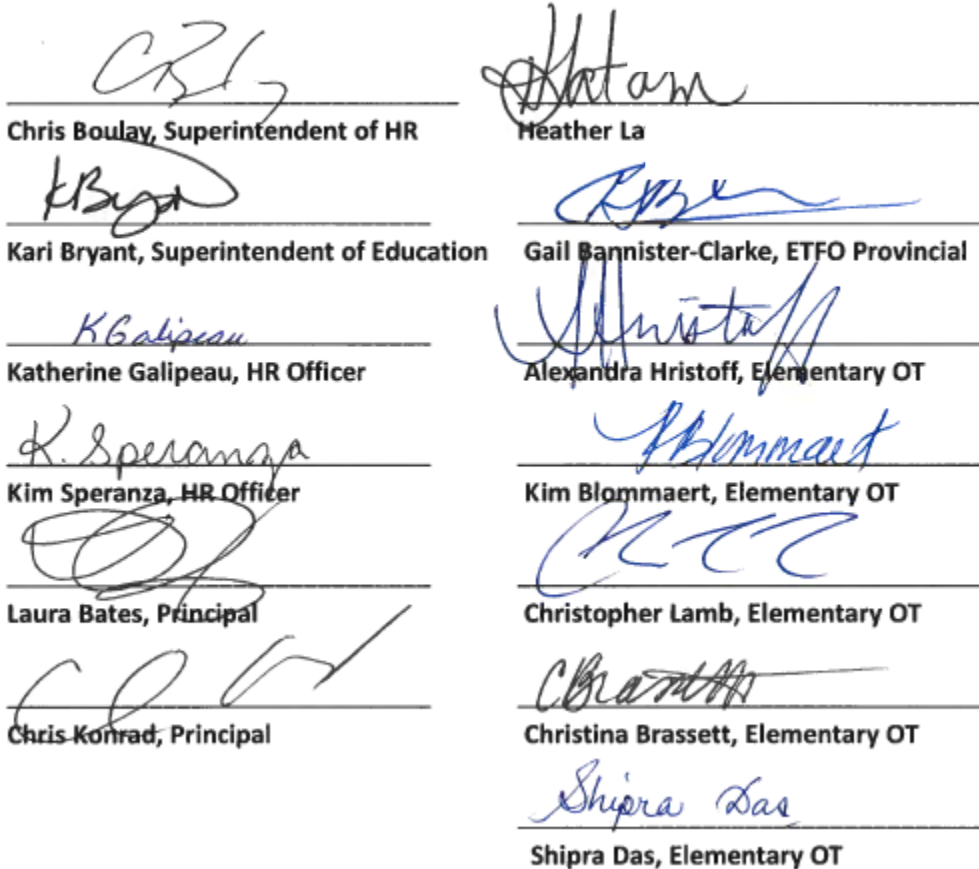 Chris Boulay, Superintendent of HR
Kari Bryant, Superintendent of Education
KGalipeau
Katherine Galipeau, HR Officer
K. Speranza
Kim Speranza, HR Officer
Laura Bates, Principal
Chris Konrad, Principal
Heather La
Gail Bannister-Clarke, ETFO Provincial
Alexandra Hristoff, Elementary OT
KBlommaert
Kim Blommaert, Elementary OT
Christopher Lamb, Elementary OT
Christina Brassett, Elementary OT
Shipra Das
Shipra Das, Elementary OT